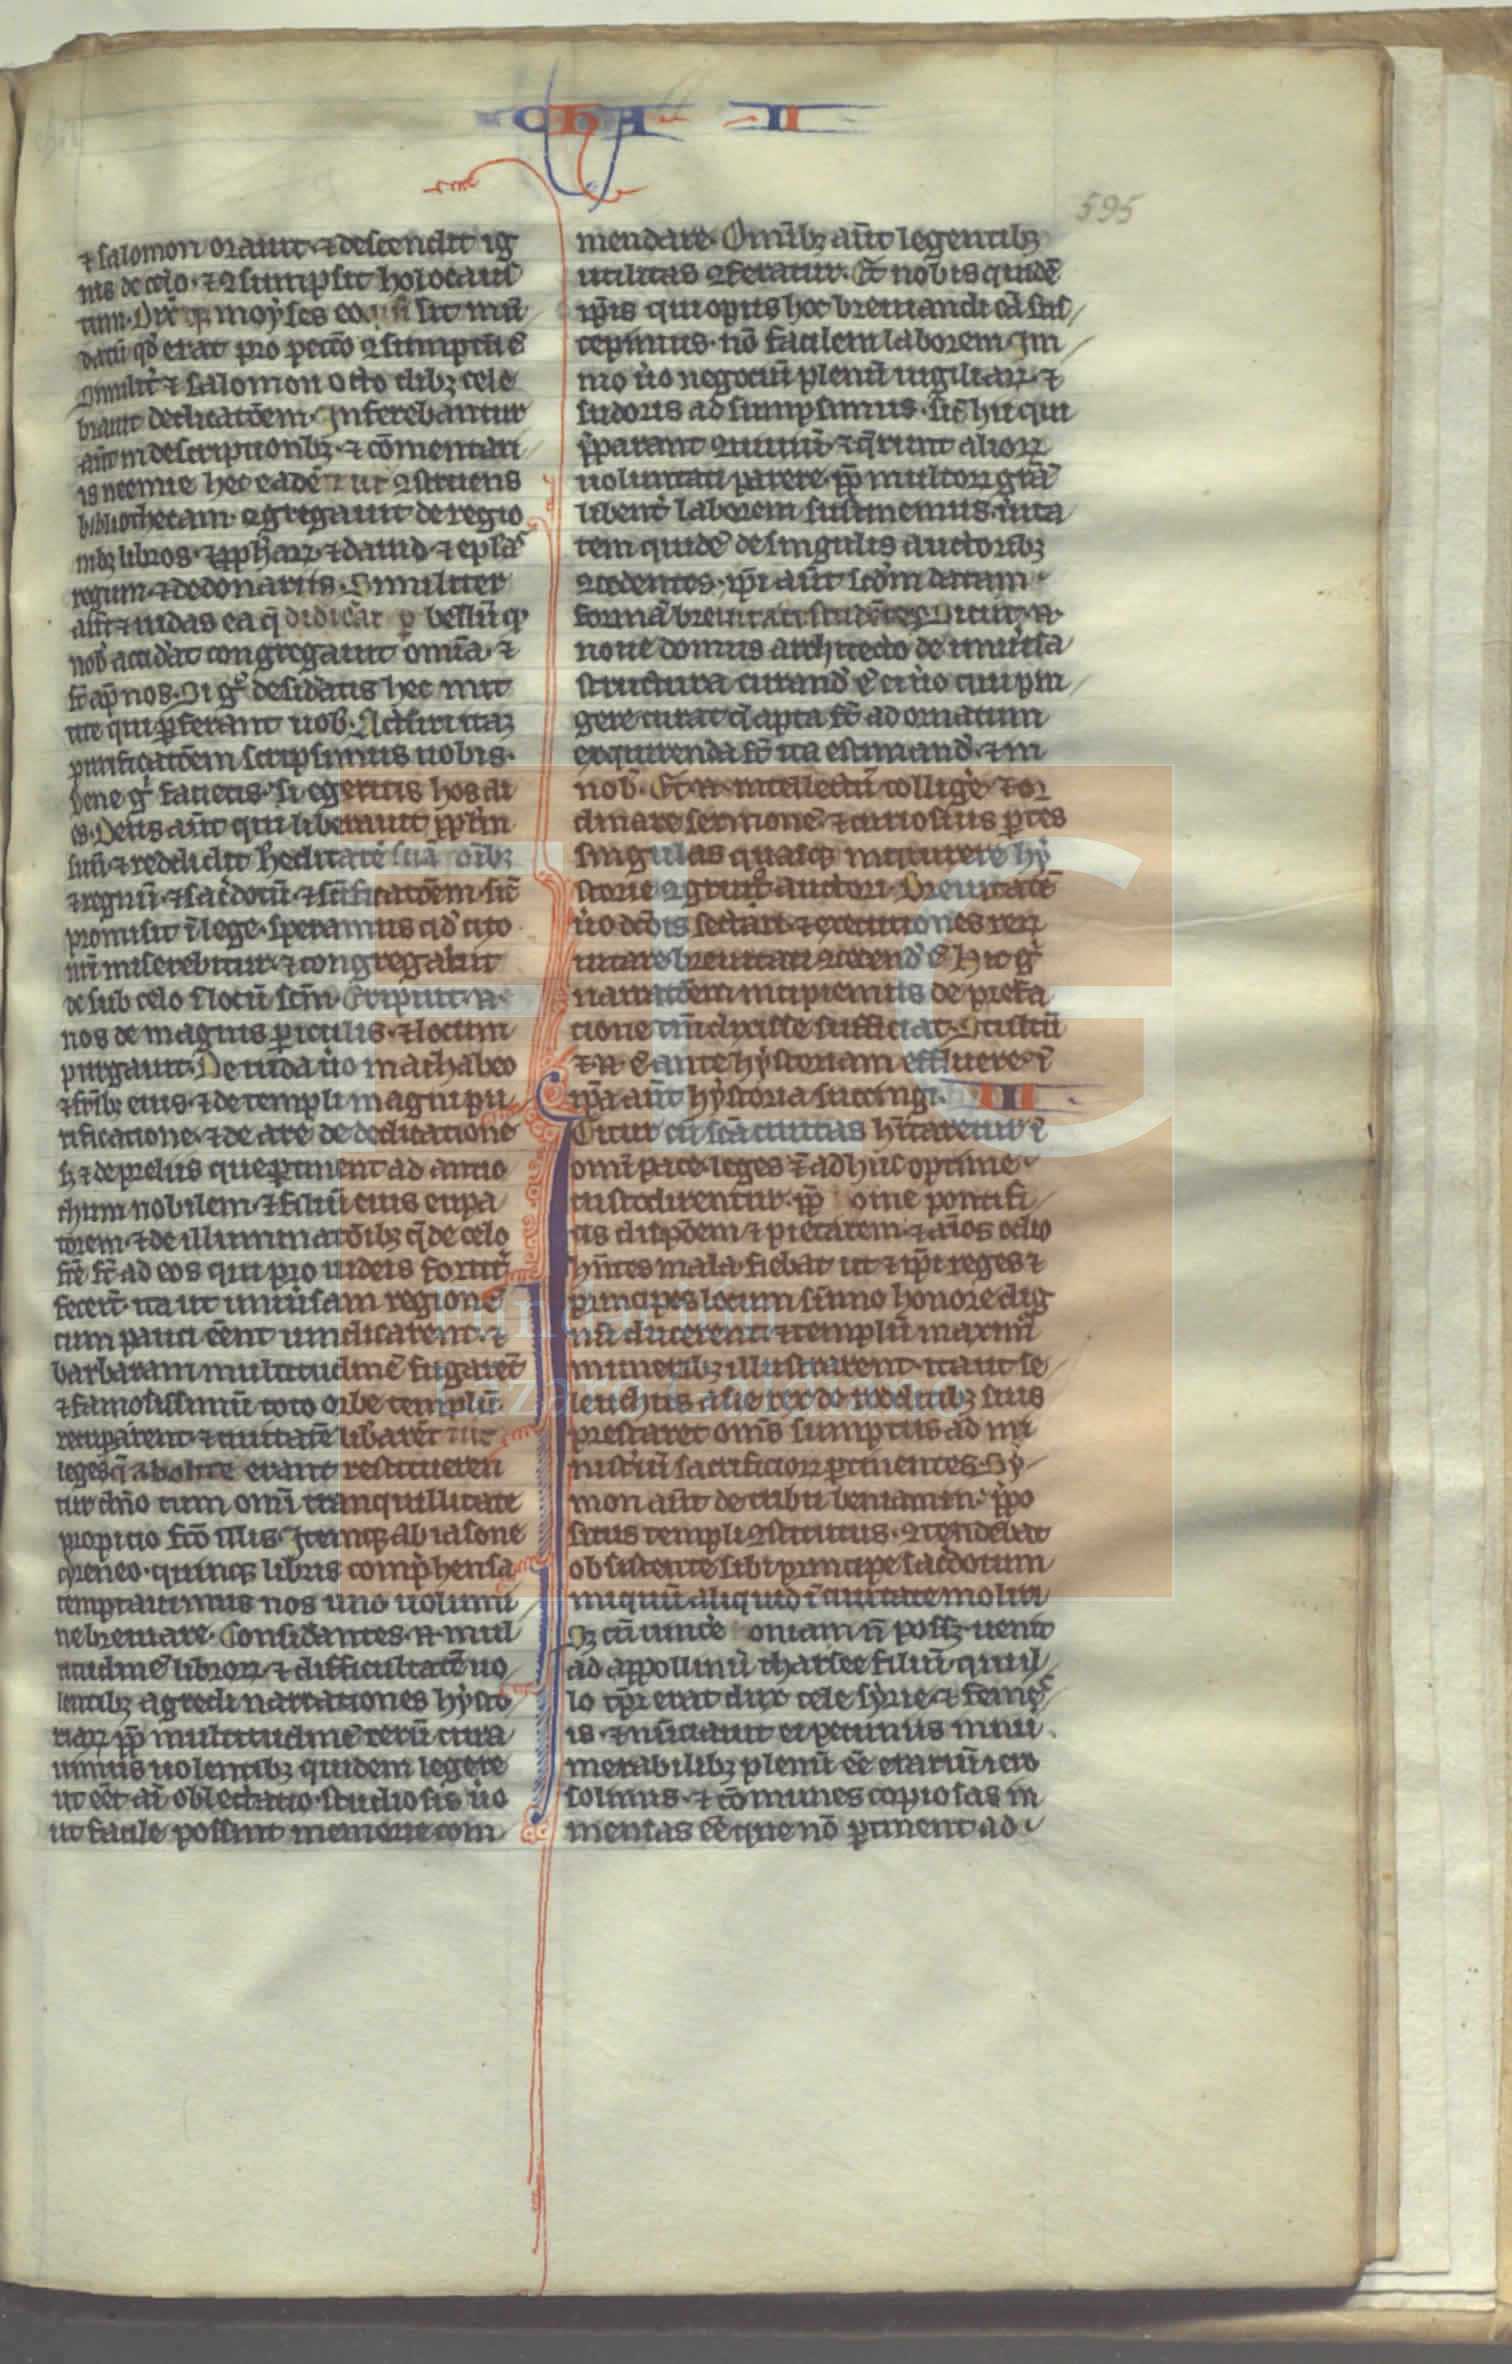 CHA II
595
⁊ salomon orauit ⁊ descendit ig
nis de celo ⁊ ꝯsumpsit holocaus
tum Dix͛ moyses eo sit mā
datū qd̓ erat pro pecc̄o ⁊ ꝯsumptū ē
Similit̓ ⁊ salomon octo dibꝫ cele
brauit dedicatōem Inferebantur
aūt in descriptionibꝫ ⁊ cōmentari
is neemie hec eadē ⁊ ut ꝯstruens
bibliothecam ꝯgregauit de regio
nibꝫ libros ⁊ ꝓph̄aꝝ ⁊ dauid ⁊ ep̄las
regum ⁊ de donariis Similiter
aūt ⁊ iudas ea q̄ didicerāt ꝑ bellū qd̓
nob̓ accid̓at congregauit omīa ⁊
sūt ap̄ nos Si gͦ desid̓atis hec mit
tite qui ꝑferant uob̓ Acturi itaqꝫ
purificatōem scripsimus uobis
bene gͦ facietis si egeritis hos di
es Deus aūt qui liberauit ppl̄m
suū ⁊ reddidit h̓editatē suā oībꝫ
⁊ regnū ⁊ sac̓dotiū ⁊ sc̄ificatōem sic̄
promisit ī lege speramus qd̓ cito
nr̄i miserebitur ⁊ congregabit
de sub celo ī locū sc̄m Eripuit n̄
nos de magnis periculis ⁊ locum
purgauit De iuda ūo machabeo
⁊ fr̄ibꝫ eius ⁊ de templi magni pu
rificatione ⁊ de are de dedicatione
sꝫ ⁊ de preliis que ꝑtinent ad antio
chum nobilem ⁊ filiū eius eupa
torem ⁊ de illuminatōibꝫ q̄ de celo
fc̄e sūt ad eos qui pro iudeis fortit̓
fecer̄t ita ut uniūsam regionē
cum pauci eēnt uindicarent ⁊
barbaram multitudinē fugarēt
⁊ famosissimū toto orbe templū
recuparent ⁊ ciuitatē lib̓arēt ⁊ ut
leges q̄ abolite erant restitueren
tur dn̄o cum omī tranquillitate
propicio fc̄o illis Itemqꝫ ab iasone
cyreneo quinqꝫ libris comp̓hensa
temptauimus nos uno uolumi
ne breuiare Considerantes n̄ mul
titudinē libroꝝ ⁊ difficultatē uo
lentibꝫ agredi narrationes hysto
riaꝝ ꝓpt̓ multitudinē rerū cura
uimus uolentibꝫ quidem legere
ut eēt aī oblectatio studiosis ūo
ut facile possint memorie com
mendare Omībꝫ aūt legentibꝫ
utilitas ꝯferatur Et nobis quidē
ip̄is qui opus hoc breuiandi cā sus
cepimus nō facilem laborem Im
mo ūo negociū plenū uigiliaꝝ ⁊
sudoris adsumpsimus sic̄ hii qui
p̓parant ꝯuiuiū ⁊ q̄runt alioꝝ
uoluntati parere ꝓpt̓ multoꝝ gr̄am
libent̓ laborem sustinemus uita
tem quidē de singulis auctoribꝫ
ꝯcedentes ip̄i aūt sc̄dm datam
formā breuitati studētes Sicut n̄
noue domus architecto de uniūsa
structura curand̓ ē ei ūo qui pin
gere curat q̄ apta sūt ad ornatum
exquirenda sūt ita estimand̓ ⁊ in
nob̓ Et n̄ intellectū collig̓e ⁊ or
dinare sermonē ⁊ curiosius ꝑtes
singulas quasqꝫ inquirere hy
storie ꝯgruit auctori Breuitatē
ūo dc̄ois sectari ⁊ executiones reꝝ
uitare breuianti ꝯcedend̓ ē Hic gͦ
narratōem incipiemus de prefa
cione tm̄ dixisse sufficiat Stultū
⁊ n̄ ē ante hystoriam effluere ī
ip̄a aūt hystoria succingi III
Igitur cū sc̄a ciuitas h̄itaretur ī
omī pace leges ⁊ adhuc optime
custodirentur ꝓpt̓ onie pontifi
cis disp̄oem ⁊ pietatem ⁊ aīos odio
h̄ntes mala fiebat ut ⁊ ip̄i reges ⁊
principes locum sūmo honore dig
nū ducerent ⁊ templū maximis
muneribꝫ illustrarent ita ut se
leuchus asie rex de redditibꝫ suis
prestaret om̄s sumptus ad mi
nist̓iū sacrificioꝝ ꝑtinentes Sy
mon aūt de tribu beniamin p̓po
situs templi ꝯstitutus ꝯtendebat
obsistente sibi principe sac̓dotum
iniquū aliquid ī ciuitate moliri
Sꝫ cū uinc̓e oniam n̄ possꝫ uenit
ad appollinū tharsee filiū qui il
lo tp̄r erat dux cele syrie ⁊ fenic
is ⁊ nūciauit ei pecuniis innu
merabilibꝫ plenū eē erariū iero
solimis ⁊ cōmunes copiosas in
mensas eē que nō ꝑtinent ad